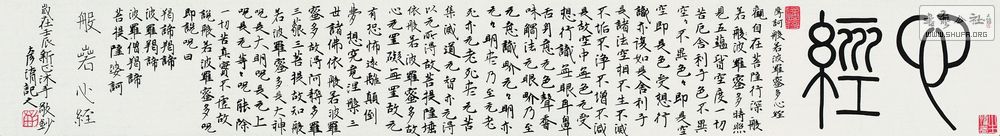 心經
摩訶般若波羅蜜多心經
觀自在菩薩行深般
若波羅蜜多時照
見五蘊皆空度一切
苦厄舍利子色不異
空空不異色色即是
空空即是色受想行
識亦復如是舍利子
是諸法空相不生不滅
不垢不淨不增不減
是故空中无色无受
想行識无眼耳鼻
舌身意无色聲香
味觸法无眼界乃至
无意識界无无明亦
无无明盡乃至无老
死亦无老死盡无苦
集滅道无智亦无得
以无所得故菩提薩埵
依般若波羅蜜多故
心无罣礙无罣礙故无
有恐怖遠離顛倒
夢想究竟涅槃三
世諸佛依般若波羅
蜜多故得阿耨多羅
三藐三菩提故知般
若波羅蜜多是大神
呪是大明呪是无上
呪是无等等呪能除
一切苦真實不虛故
說般若波羅蜜多呪
即說呪曰
揭諦揭諦
波羅揭諦
波羅僧揭諦
菩提薩婆訶
般若心経
歲在壬辰新正沐手敬鈔
WWW.SHUFA.ORG